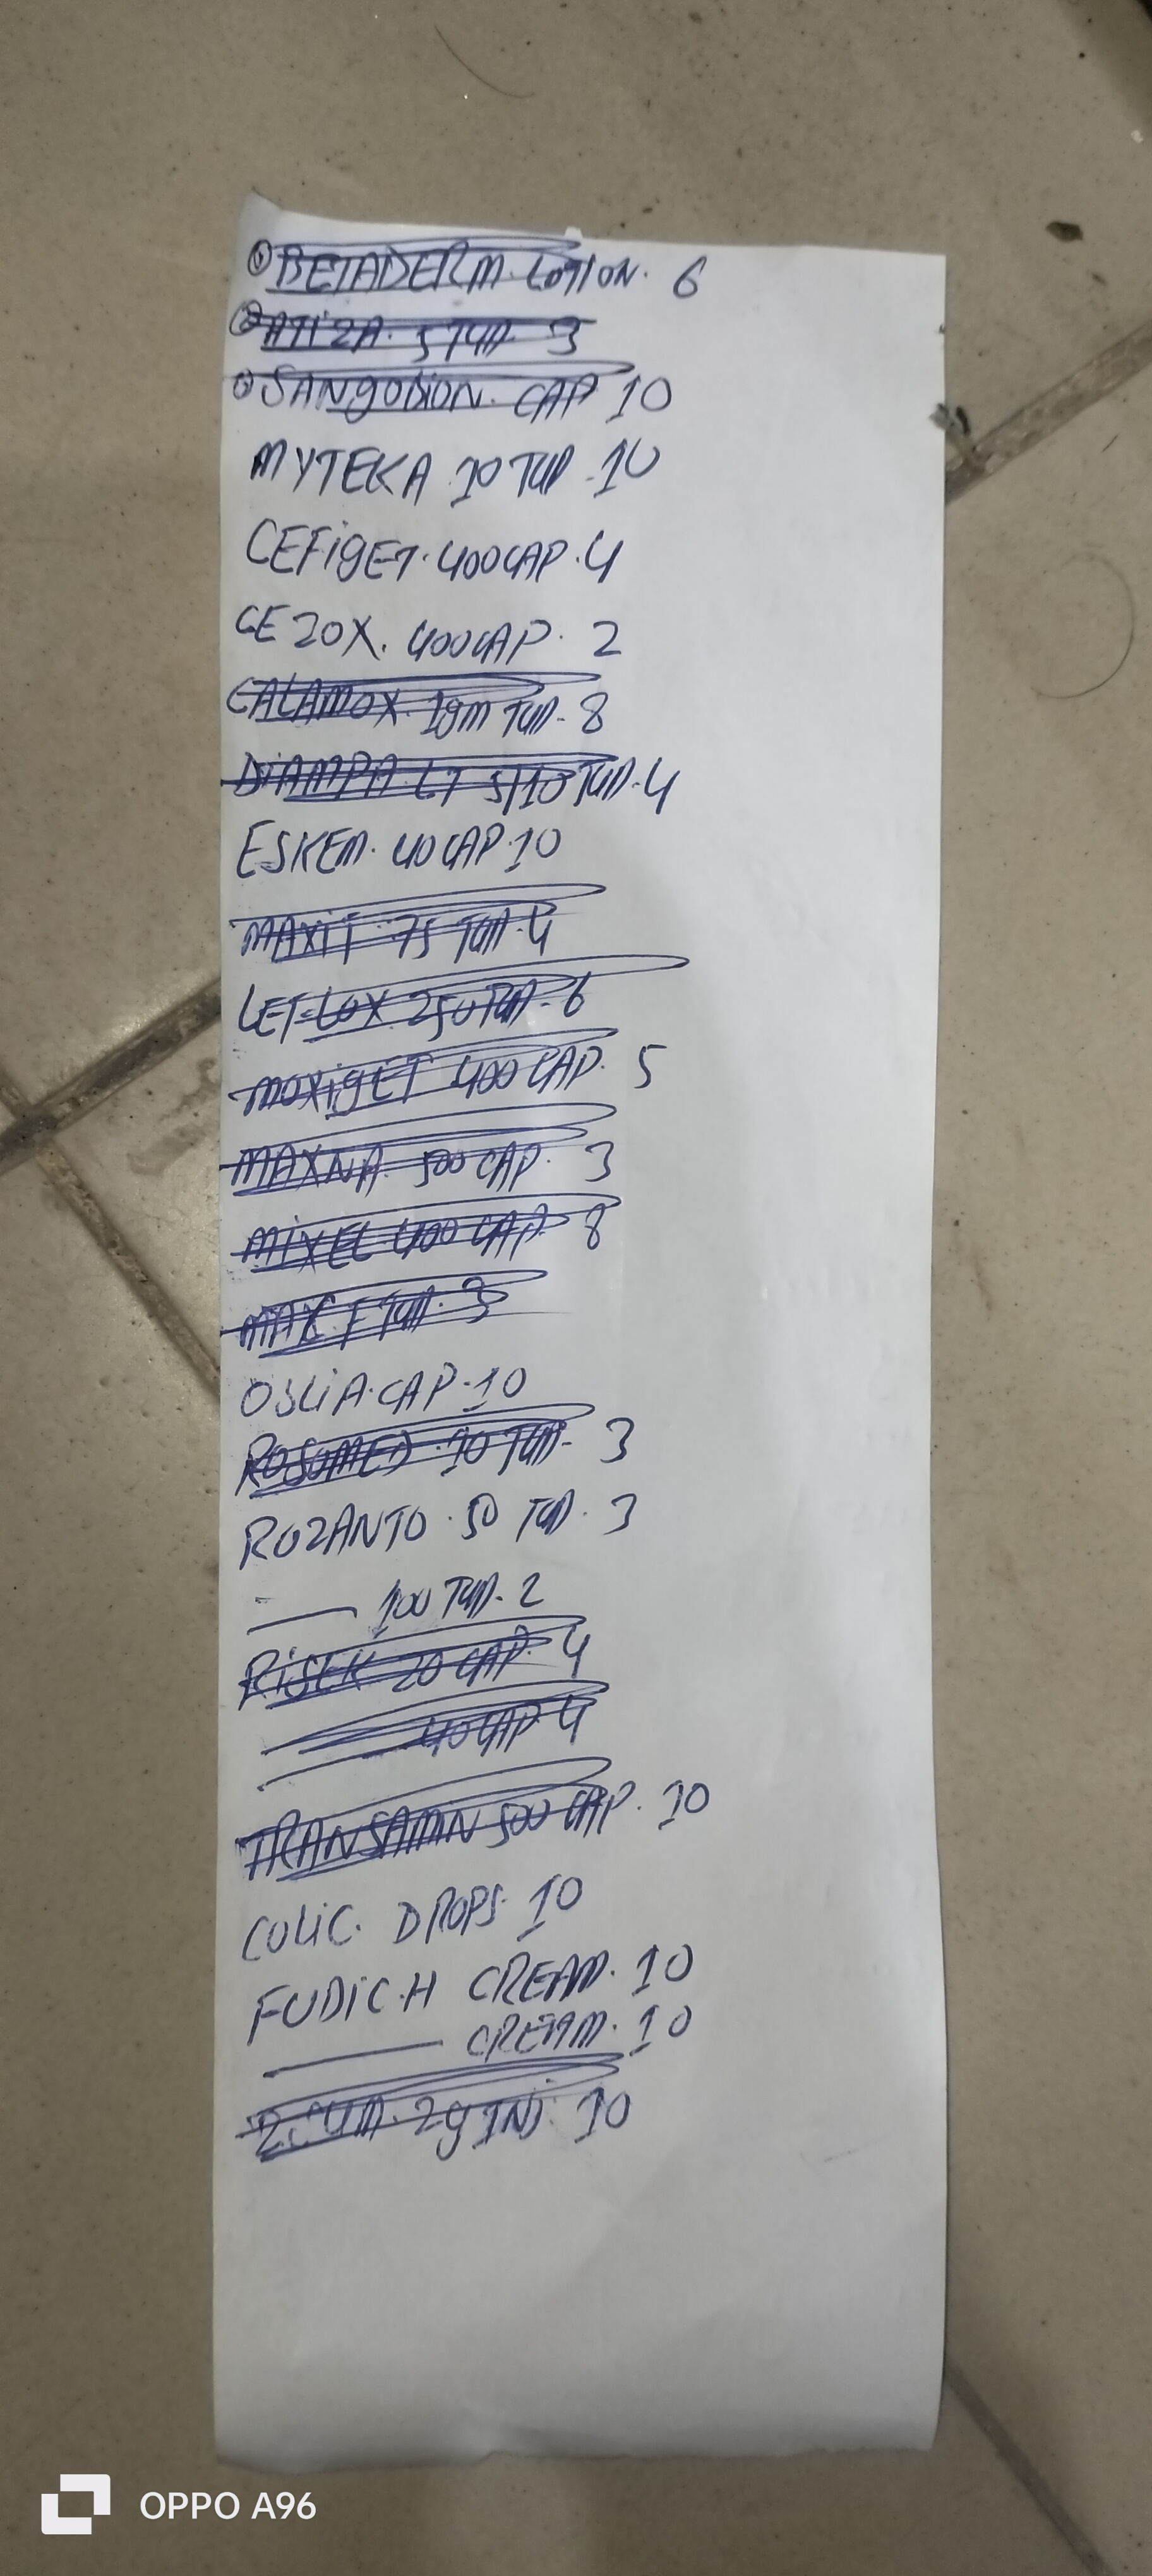 ① BETADERM. LOTION. 6
② ATIZA. 5 TAB 3
③ SANGOBION. CAP 10
MYTEKA 10 TAB - 10
CEFIGET. 400 CAP. 4
CEZOX. 400 CAP. 2
CALAMOX. 1gm TAB - 8
DIAMPA 5/10 TAB. 4
ESKEM. 40 CAP. 10
MAXIT 75 TAB. 4
250 TAB - 6
MOXIGET 400 CAP. 5
MAXNA 500 CAP. 3
MIXEL 400 CAP 8
TAB. 3
OSLIA. CAP. 10
10 TAB - 3
ROZANTO. 50 TAB. 3
—— 100 TAB. 2
RISEK 20 CAP. 4
40 CAP. 4
TRANSAMIN 500 CAP. 10
COLIC. DROPS. 10
FUDIC.H CREAM. 10
—— CREAM. 10
2g INJ. 10
OPPO A96